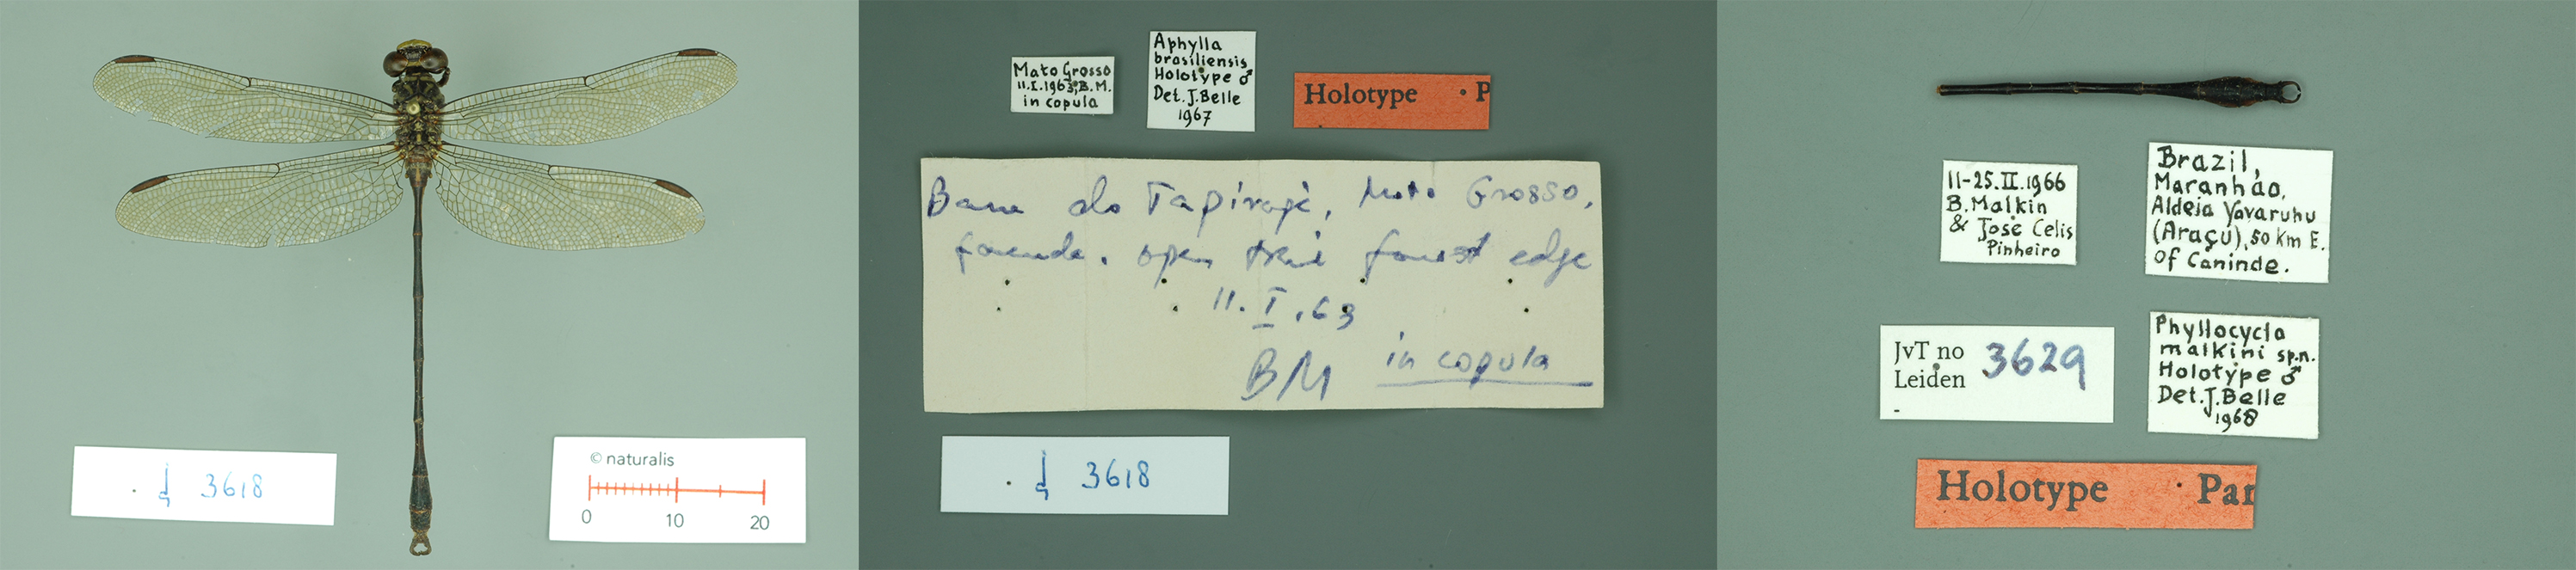 3618
© naturalis
0 10 20
Mato Grosso
11.I.1963, B.M.
in copula
Aphylla
brasiliensis
Holotype ♂
Det. J. Belle
1967
Holotype · P
do Tapirapé, Mato Grosso,
open forest edge
11.I.63
BM in copula
3618
11-25.II.1966
B. Malkin
& José Celis
Pinheiro
Brazil,
Maranhão,
Aldeia Yavaruhu
(Araçú), 50 km E.
of Caninde.
JvT no 3629
Leiden
Phyllocycla
malkini sp.n.
Holotype ♂
Det. J. Belle
1968
Holotype · Par